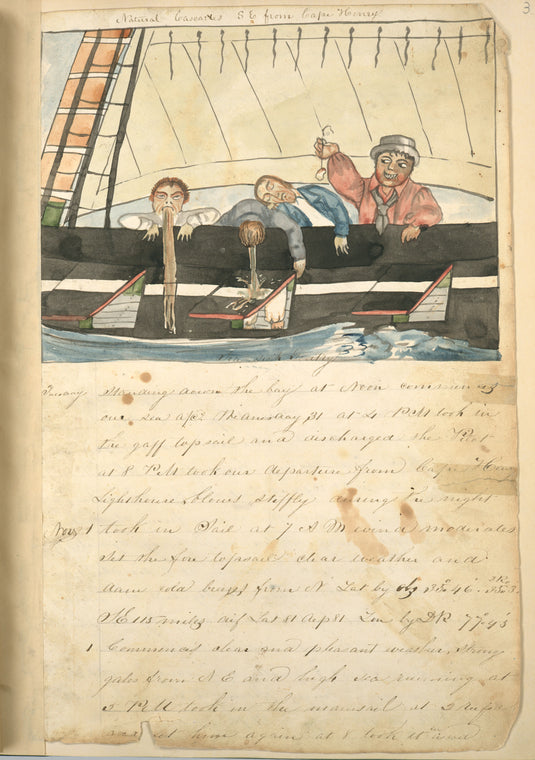 3
Natural Cascade S E from Cape Henry
Tuesday standing down the bay at Noon commences
our sea a/c Wednesday 31 at 4 PM took in
the gaff topsail and discharged the Pilot
at 8 PM took our departure from Cape Henry
Lighthouse blows stiffly during the night
Nov 1 took in Sail at 7 A M wind moderates
set the fore topsail clear weather and
from N Lat by 46
SE 115 miles dif Lat 81 dep 81 Lon by DR
1 Commences clear and pleasant weather, strong
gales from S E and high sea running at
PM took in the mainsail at 2
and set him again at 8 took it in